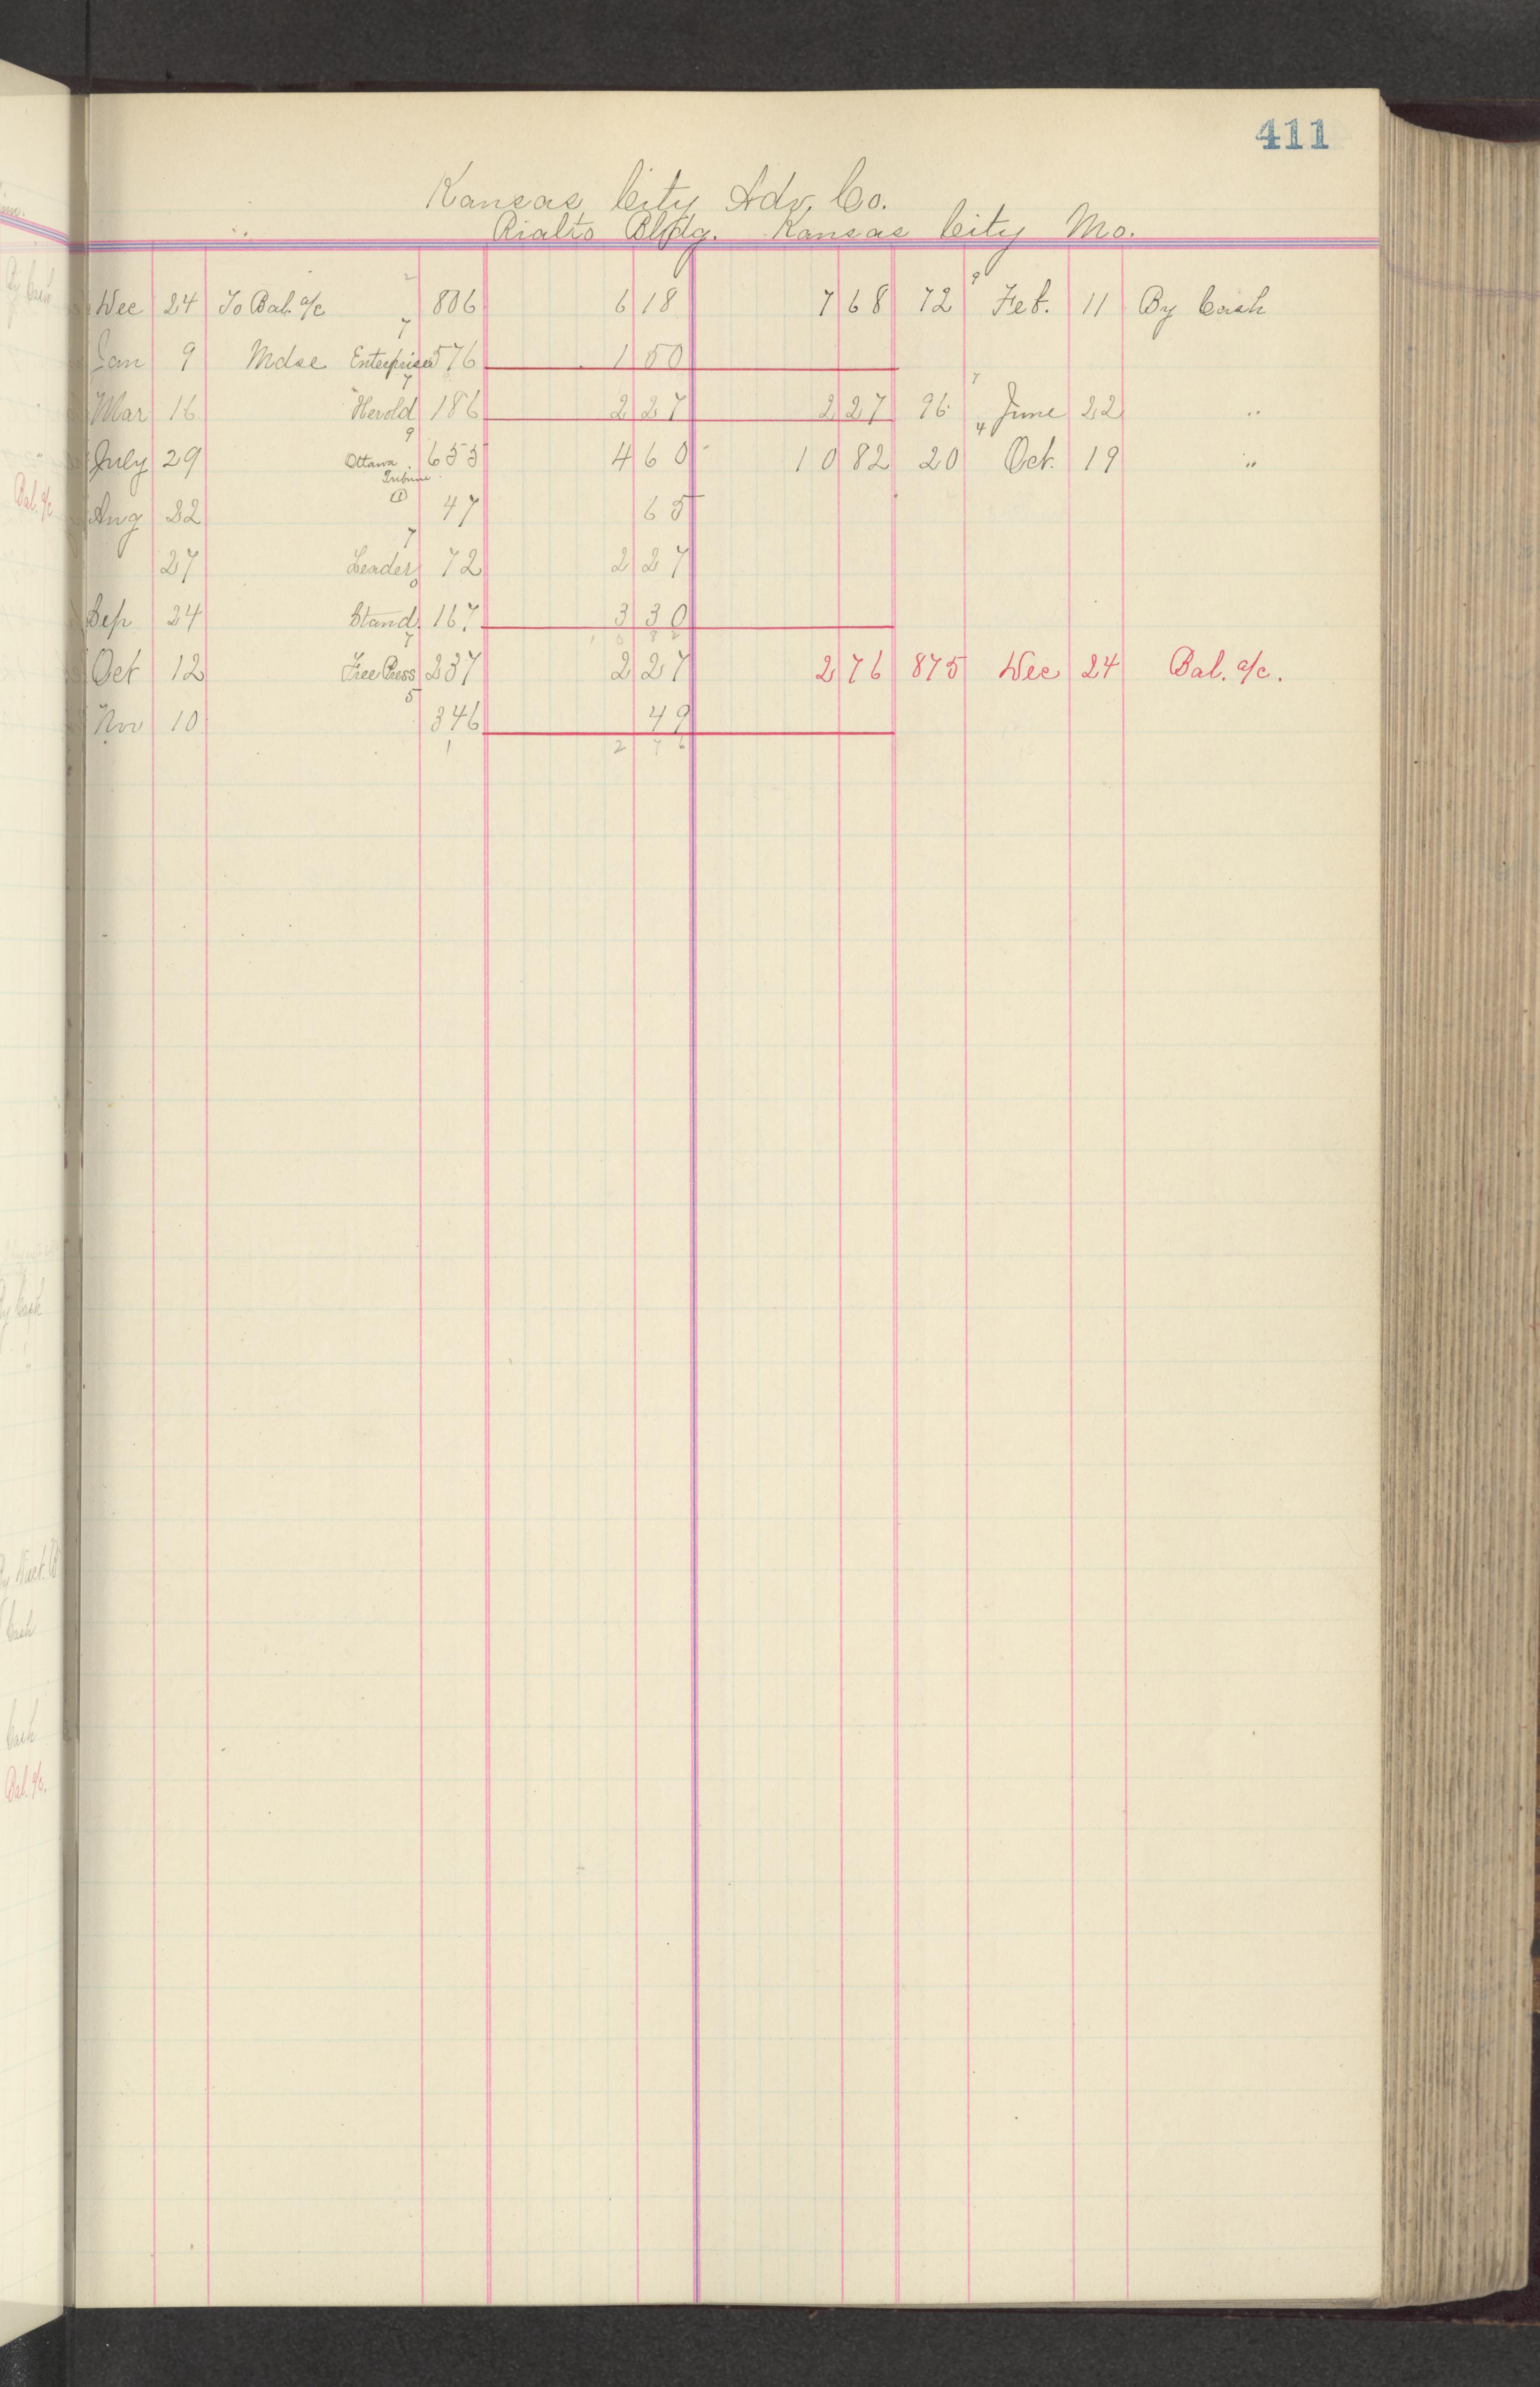 411
Kansas City Adv. Co.
Rialto Bldg. Kansas City Mo.
2 9
Dec 24 To Bal. a/c 806 6 18 7 68 72 Feb. 11 By Cash
7
Jan 9 Mdse Enterprise 576 1 50
7 7
Mar 16 Herold 186 2 27 2 27 96 June 22 "
9 4
July 29 Ottawa Tribune 653 4 60 10 82 20 Oct. 19 "
Aug 22 47 65
7
27 Leader 72 2 27
Sep 24 Stand. 167 3 30
7
Oct 12 Free Press 237 2 27 2 76 875 Dec 24 Bal. a/c.
5
Nov 10 346 49
1 2 7 6
By Cash
Bal. a/c
By Cash
"
Cash
Cash
Bal. a/c.